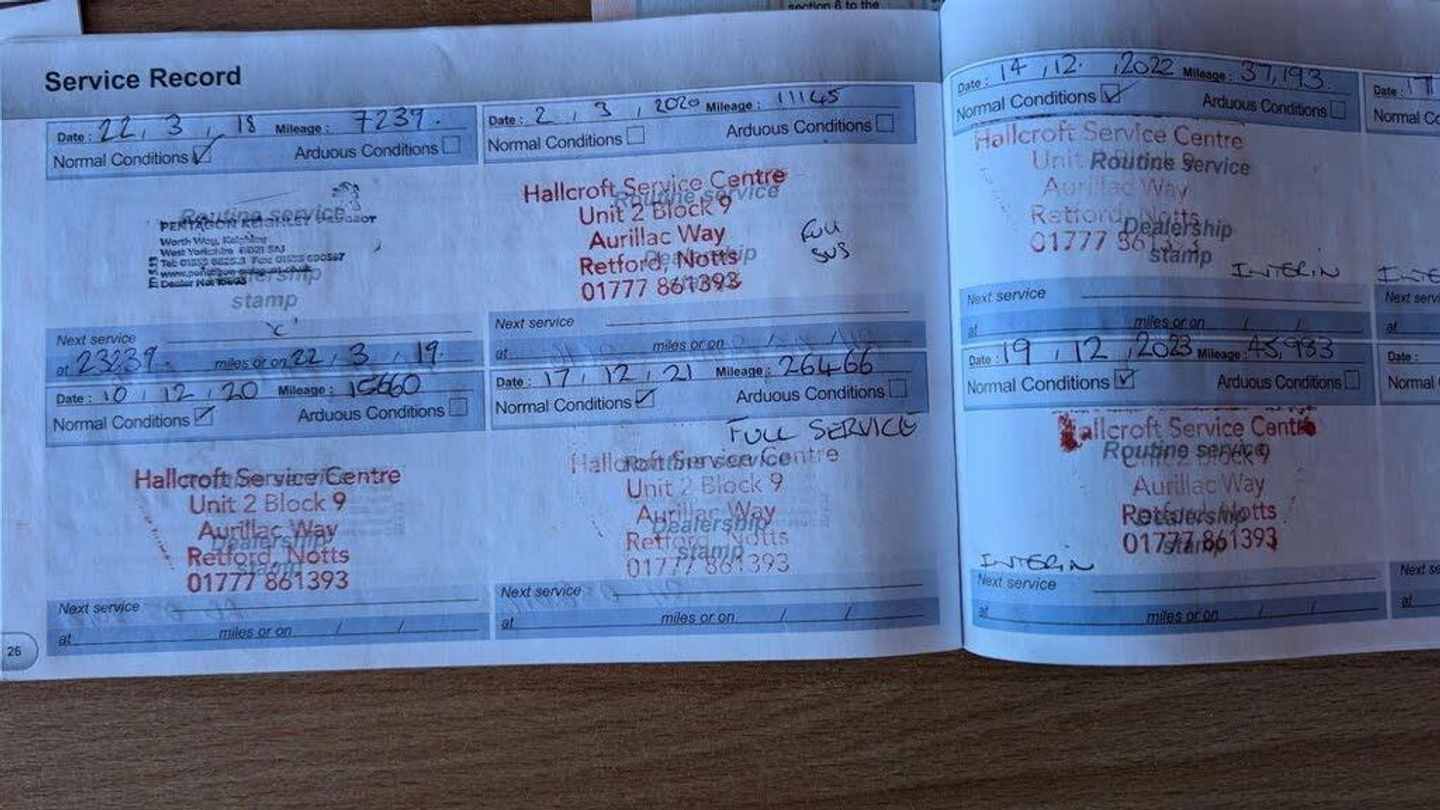 section 6 to the
Service Record
Date : 22 , 3 , 18 Mileage : 7239.
Normal Conditions Arduous Conditions
Routine service
PENTAGON KEIGHLEY PEUGEOT
Worth Way, Keighley
West Yorkshire
Dealership
stamp
'C'
Next service
at 23239. miles or on 22 , 3 , 19.
Date : 2 , 3 , 2020 Mileage : 11145
Normal Conditions Arduous Conditions
Hallcroft Service Centre
Routine service
Unit 2 Block 9
Aurillac Way
Full
Retford, Notts
Dealership
SVS
01777 861393
Next service
at miles or on / /
Date : 10 , 12 , 20 Mileage : 15660
Normal Conditions Arduous Conditions
Hallcroft Service Centre
Unit 2 Block 9
Aurillac Way
Dealership
Retford, Notts
stamp
01777 861393
Next service
at miles or on / /
Date : 17 , 12 , 21 Mileage : 26466
Normal Conditions Arduous Conditions
FULL SERVICE
Hallcroft Service Centre
Routine service
Unit 2 Block 9
Aurillac Way
Dealership
Retford, Notts
stamp
01777 861393
Next service
at miles or on / /
26
Date : 14 , 12. , 2022 Mileage : 37,193.
Normal Conditions Arduous Conditions
Hallcroft Service Centre
Unit 2 Block 9
Routine service
Aurillac Way
Retford, Notts
Dealership
01777
stamp
INTERIN
Next service
at miles or on / /
Date : 19 , 12 , 2023 Mileage : 45,983
Normal Conditions Arduous Conditions
Hallcroft Service Centre
Routine service
Unit 2 Block 9
Aurillac Way
Retford, Notts
Dealership
01777 861393
stamp
INTERIN
Next service
at miles or on / /
Date : 17
Normal Co
INTE
Next servi
at
Date :
Normal
Next se
at